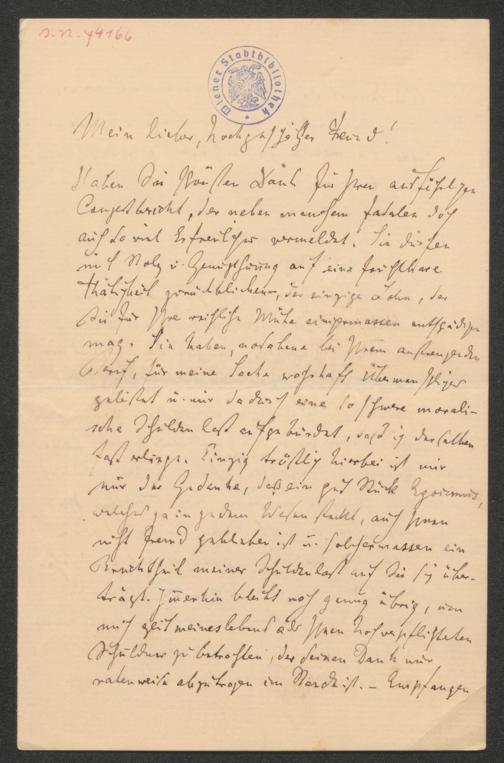 I.N. 44166
Wiener Stadtbibliothek
Mein lieber, hochgeschätzter Freund!
Haben Sie schönsten Dank für Ihren ausführlichen
Concertbericht, der neben manchem fatalen doch
auch so viel Erfreuliches vermeldet. Sie dürfen
mit Stolz u. Genugthuung auf eine fruchtbare
Thätigkeit zurückblicken, der einzige Lohn, der
Sie für Ihre reichliche Mühe einigermassen entschädigen
mag. Sie haben, notabene bei Ihrem anstrengenden
Beruf, für meine Sache wahrhaft Übermenschliches
geleistet u. mir dadurch eine so schwere morali-
sche Schuldenlast aufgebürdet, daß ich derselben
fast erliege. Einzig tröstlich hierbei ist mir
nur der Gedanke, daß ein gut Stück Egoismus,
welches ja in jedem Wesen steckt, auch Ihnen
nicht fremd geblieben ist u. solchermassen ein
Bruchtheil meiner Schuldenlast auf Sie sich über-
trägt. Immerhin bleibt noch genug übrig, um
mich zeit meines lebens als Ihren hochverpflichteten
Schuldner zu betrachten, der seinen Dank nur
ratenweise abzutragen im Stande ist. – Empfangen